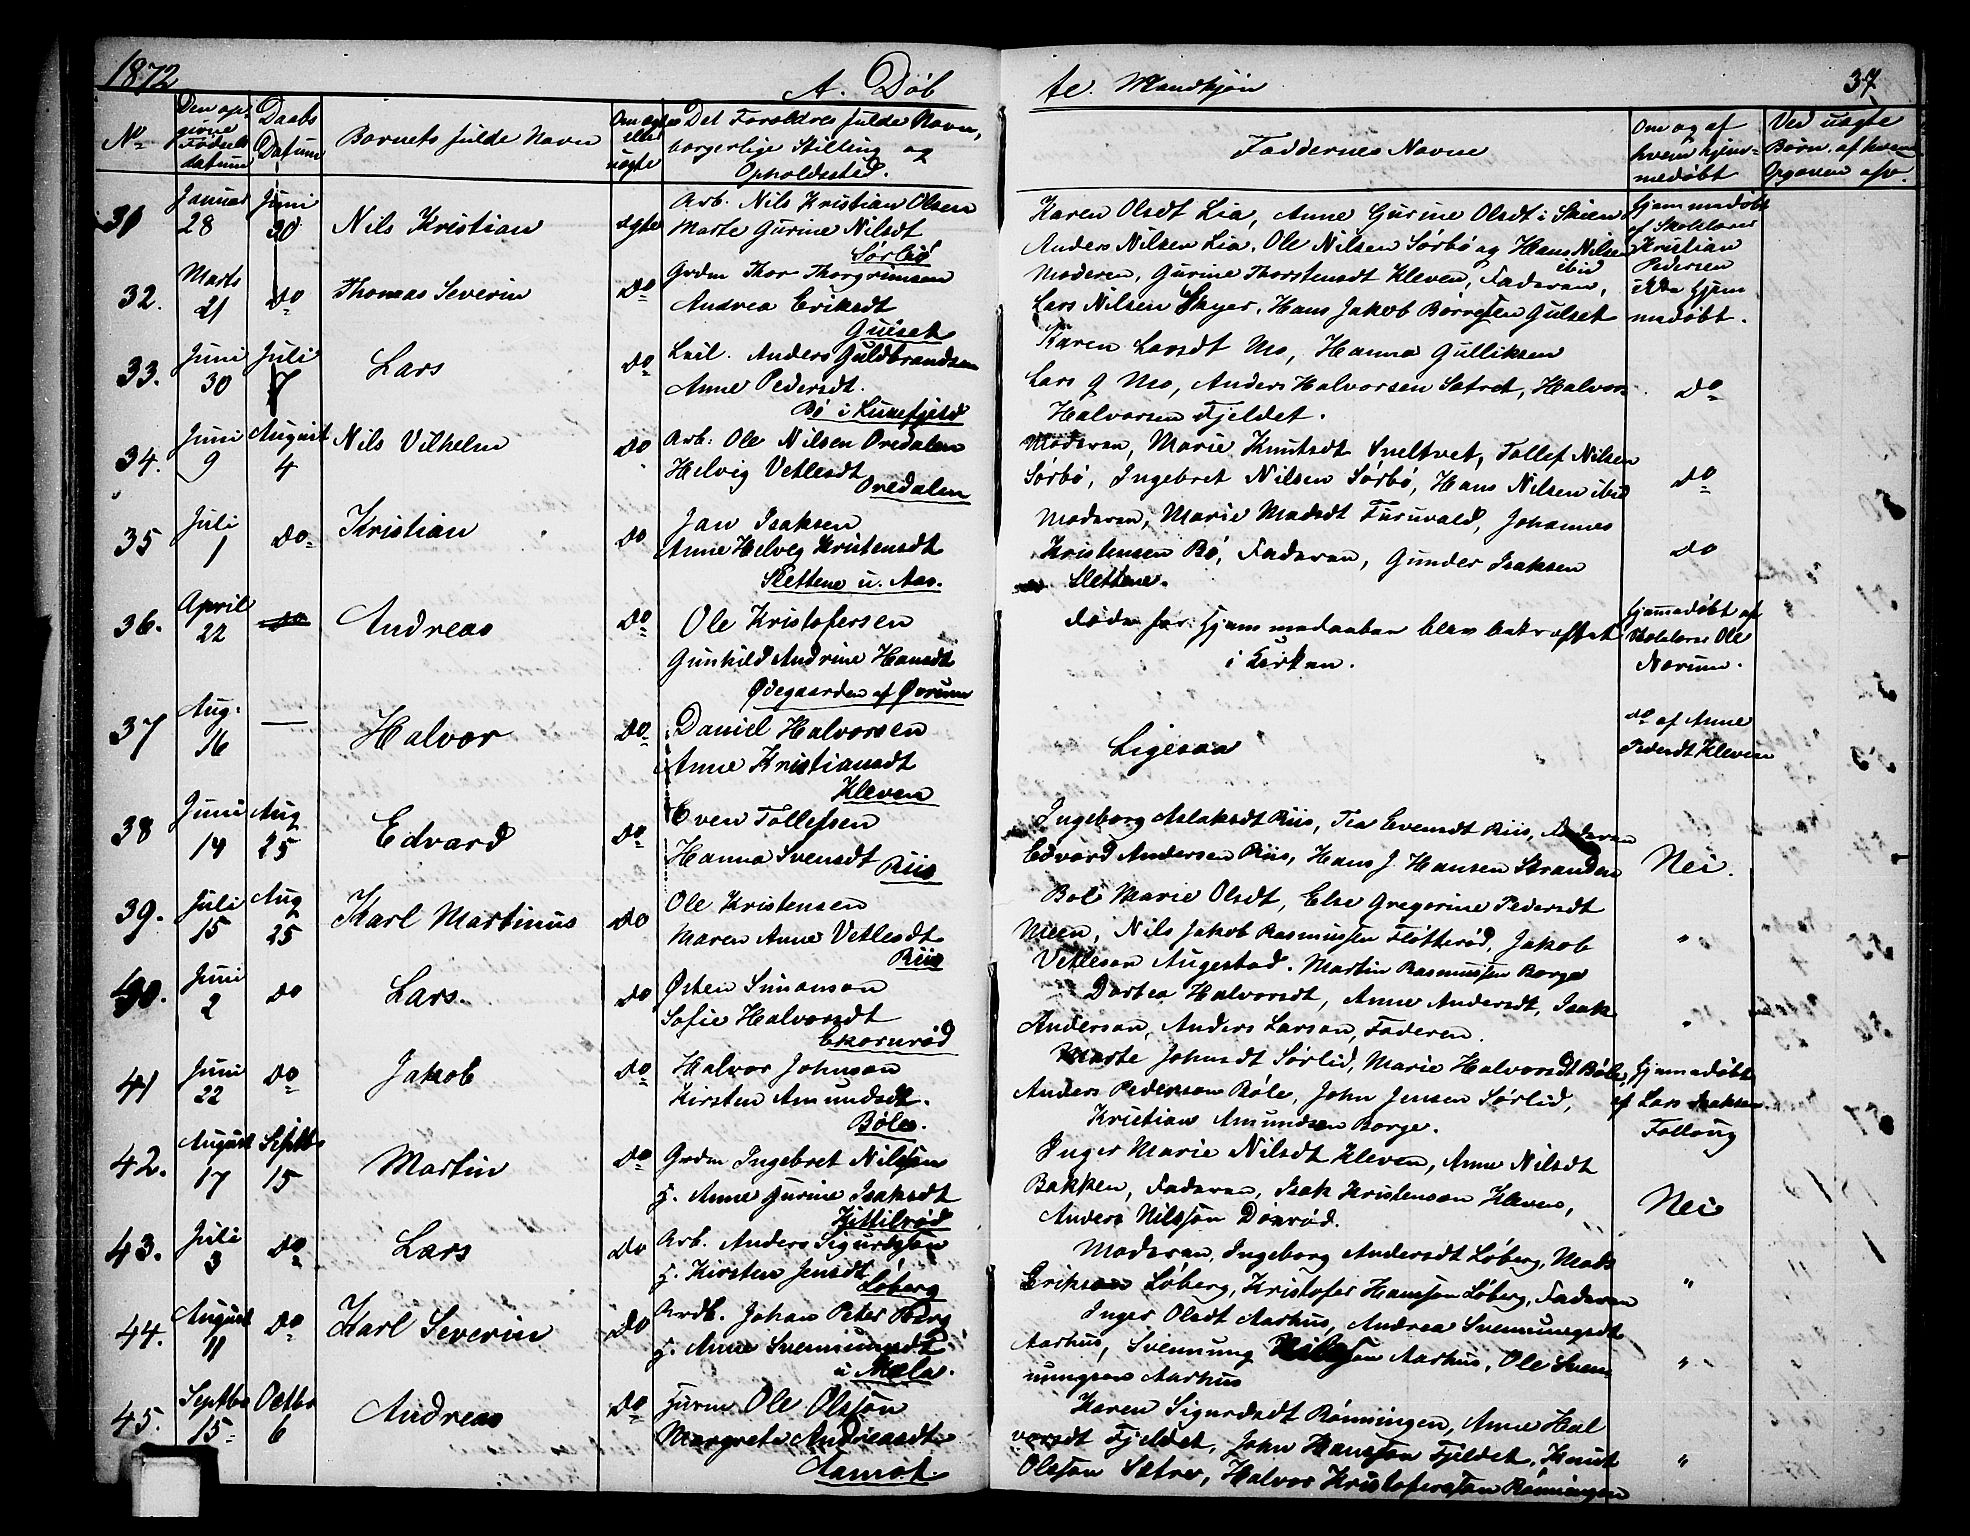 1872
A. Døb
te. Mandkjøn
37
No
Den op-
givne
Fødsels
datum
Daabs
Datum
Barnets fulde Navn
Om ægte
eller
uægte
Det Foraldres fulde Navn,
borgerlige Stilling og
Opholdssted.
Faddernes Navne
Om og af
hvem hjem-
medøbt
Ved uægte
Børn, af hvem
Opgaven
31 Januar 28 Juni 30 Nils Kristian ægte
Arb. Nils Kristian Olsen
Marte Gurine Nilsdt
Sørbø
Karen Olsdt Lia, Anne Gurine Olsdt i Skien
Anders Nilsen Lia, Ole Nilsen Sørbø og Hans Nilsen
ibid
Hjemmedøbt
af Skolelærer
Kristian
Pedersen
32. Marts 21 do Thomas Severin do
Grdm Thor Thorgrimsen
Andrea Eriksdt
Gulset
Moderen, Gurine Thorstensdt Kleven, Faderen,
Lars Nilsen Skyer, Hans Jakob Børresen Gulset
ikke hjem
medøbt.
33. Juni 30 Juli 7 Lars do
Leil. Anders Guldbrandsen
Anne Pedersdt.
Bø i Luxefjeld
Karen Larsdt Mo, Hanna Gulliksen
Lars G Mo, Anders Halvorsen Sætret, Halvor
Halvorsen Fjeldet.
do
34. Juni 9 August 4 Nils Vilhelm do
Arb. Ole Nilsen Oredalen
Helvig Vetlesdt
Oredalen
Moderen, Marie Knutsdt Sneltvet, Tollef Nilsen
Sørbø, Ingebret Nilsen Sørbø, Hans Nilsen ibid
do
35 Juli 1 do Kristian do
Jan Isaksen
Anne Helveg Kristensdt
Slettene u. Aas.
Moderen, Marie Madsdt Furuvald, Johannes
Kristensen Bø, Faderen, Gunder Isaksen
Slettene.
do
36. April 22 do Andreas do
Ole Kristofersen
Gunhild Andrine Hansdt
Ødegaarden af Øvrum
Døde før hjemmedaaben blev bekræftet
i Kirken.
Hjemmedøbt af
Skolelærer Ole
Nørum.
37 Aug. 16 — Halvor do
Daniel Halvorsen
Anne Kristiansdt
Kleven
Ligesaa
do af Anne
Pedersdt Kleven
38 Juni 14 Aug 25 Edvard do
Even Tollefsen
Hanna Svensdt Riis
Ingeborg Aslaksdt Riis, Tea Evensdt Riis, Faderen
Edvard Andersen Riis, Hans J. Hansen Stranden
Nei.
39. Juli 15 Aug 25 Karl Martinus do
Ole Kristensen
Maren Anne Vetlesdt
Riis
Bol Marie Olsdt, Else Gregorine Pedersdt
Meen, Nils Jakob Rasmussen Fløtterød, Jakob
Vetlesen Augestad. Martin Rasmussen Borge
"
40. Juni 2 do Lars. do
Østen Simonsen
Sofie Halvorsdt
Ekornrød
Dortea Halvorsdt, Anne Andersdt, Isak
Andersen, Anders Larsen, Faderen.
"
41 Juni 22 do Jakob do
Halvor Johnsen
Kirsten Amundsdt.
Bøle.
Marte Johnsdt Sørlid, Marie Halvorsdt Bøle,
Anders Pedersen Bøle, John Jensen Sørlid,
Kristian Amundsen Borge.
Hjemmedøbt
af Lars Isaksen
Follaug
42. August 17 Septbr 15 Martin do
Grdm Ingebret Nilssen
H. Anne Gurine Isaksdt
Kittilrød
Inger Marie Nilsdt Kleven, Anne Nilsdt
Bakken, Faderen, Isak Kristensen Kleven,
Anders Nilssen Dørrød.
Nei
43. Juli 3 do Lars do
Arb. Anders Sigurdssen
H. Kirsten Jensdt
Løberg
Moderen, Ingeborg Andersdt Løberg, Mads
Eriksen Løberg, Kristofer Hanssen Løberg, Faderen
"
44. August 11 do Karl Severin do
Arb. Johan Peter Berg
H. Anne Svennumsdt
u Mæla.
Inger Olsdt Aarhus, Andrea Svennungsdt
Aarhus, Svennung Nilssen Aarhus, Ole Sven
nungsen Aarhus
"
45. Septbr 15 Octbr 6 Andreas do
Furm Ole Olssøn
Margrete Andreasdt.
Aamot.
Karen Sigurdsdt Rønningen, Anne Hal
vorsdt Fjeldet, John Hanssen Fjeldet, Knut
Olssøn Sætre, Halvor Kristoferssøn Rønningen
"